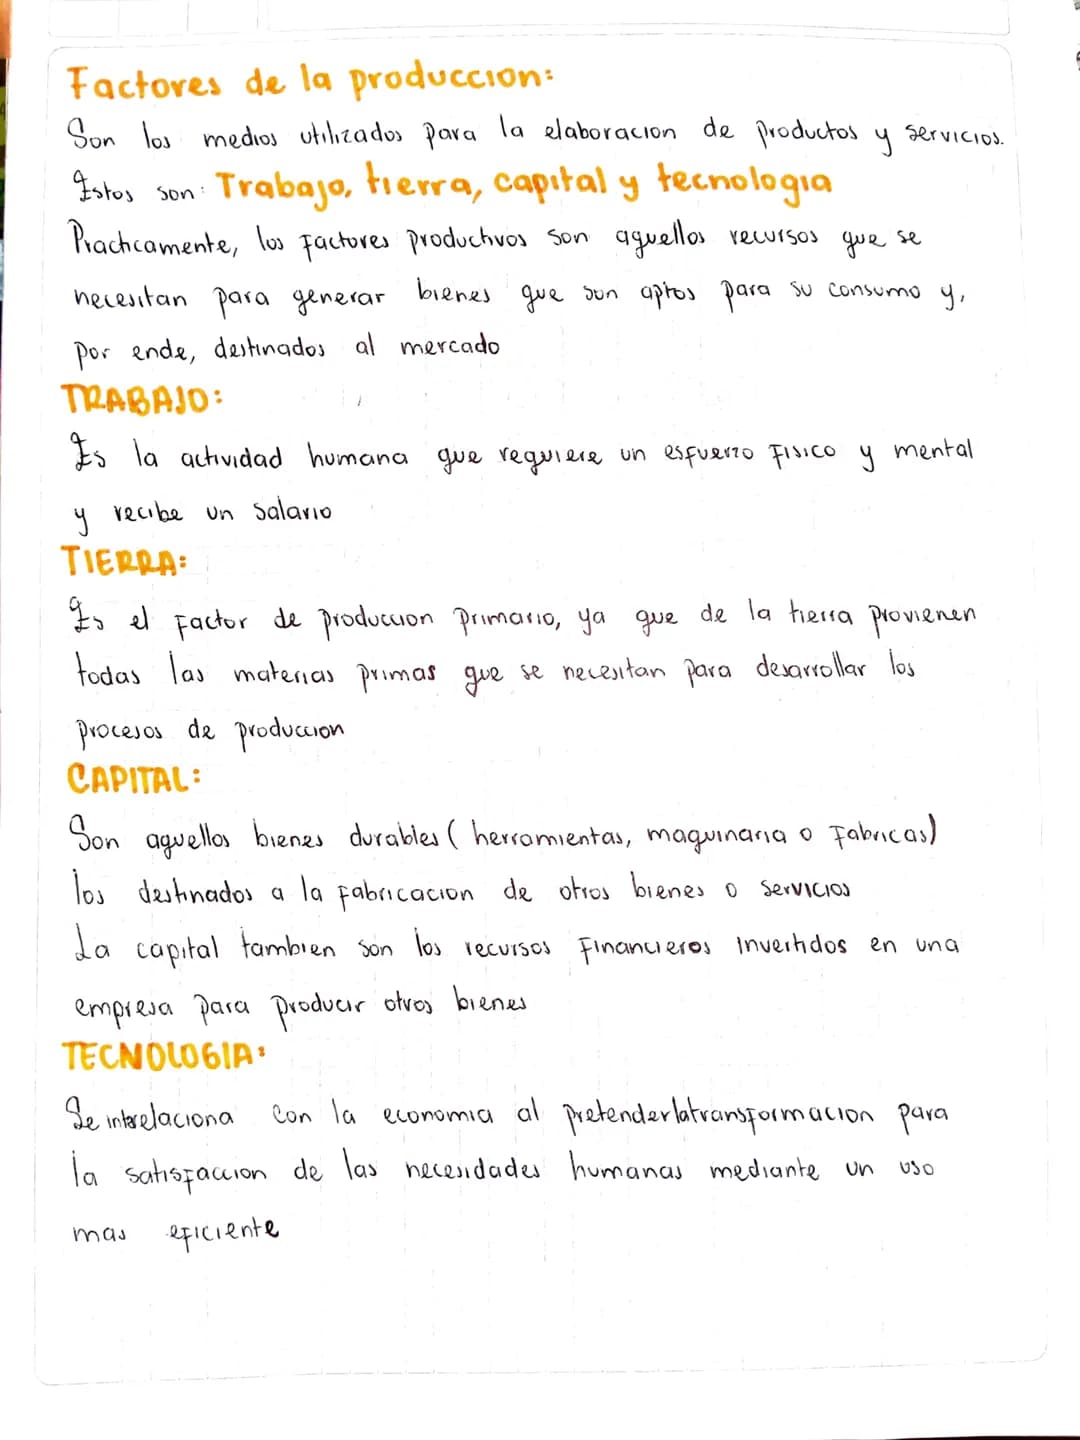 Factores de la produccion:
Son los medios utilizados para la elaboracion de productos y servicios.
Estos son: Trabajo, tierra, capital y tecnologia
Practicamente, los factores productivos son aquellos recursos que se
necesitan para generar bienes que son aptos para su consumo y,
por ende, destinados al mercado
TRABAJO:
Es la actividad humana que requiere un esfuerzo fisico y mental
y recibe un salario
TIERRA:
Es el factor de produccion primario, ya que de la tierra provienen
todas las materias primas que se necesitan para desarrollar los
procesos de produccion
CAPITAL:
Son aquellos bienes durables ( herramientas, maquinaria o fabricas)
los destinados a la fabricacion de otros bienes o servicios
La capital tambien son los recursos financieros invertidos en una
empresa para producir otros bienes
TECNOLOGIA:
Se intrelaciona con la economia al pretenderlatransformacion para
la satisfaccion de las necesidades humanas mediante un uso
mas eficiente